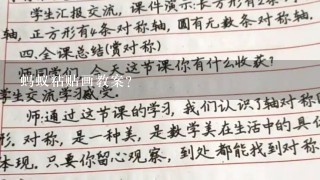 学生汇报交流，课件演示：长方形有2条
轴，正方形有4条对称轴，圆有无数条对称轴.
四.全课总结(赏对称)
今天这节课你有什么收获?
蚂蚁粘贴画教案?
学生交流学习感受.
师:通过这节课的学习，我们认识了轴对称图
形.对称，是一种美，是数学美在生活中的具
体现.只要你留心观察，到处都能找到对称